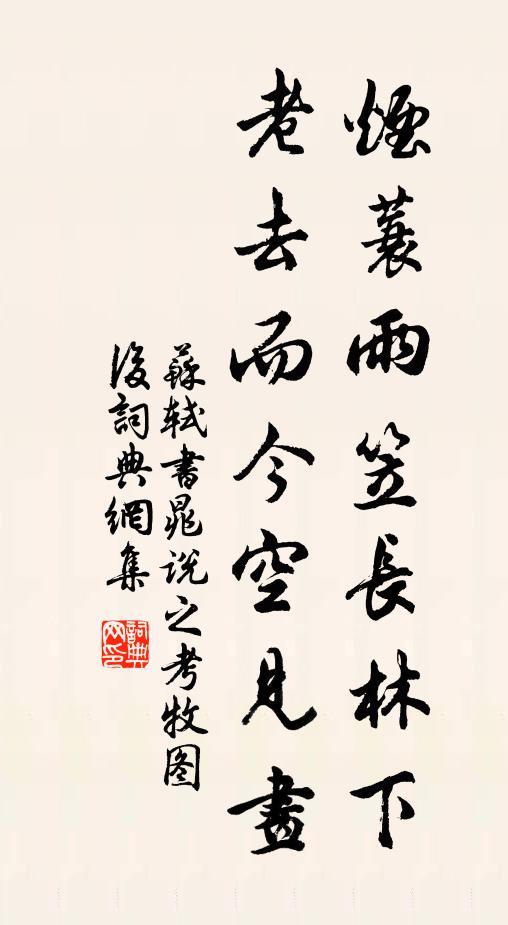 煙蓑雨笠長林下
老去而今空見畫
蘇軾書晁說之考牧图
後詞典網集
詞典网印